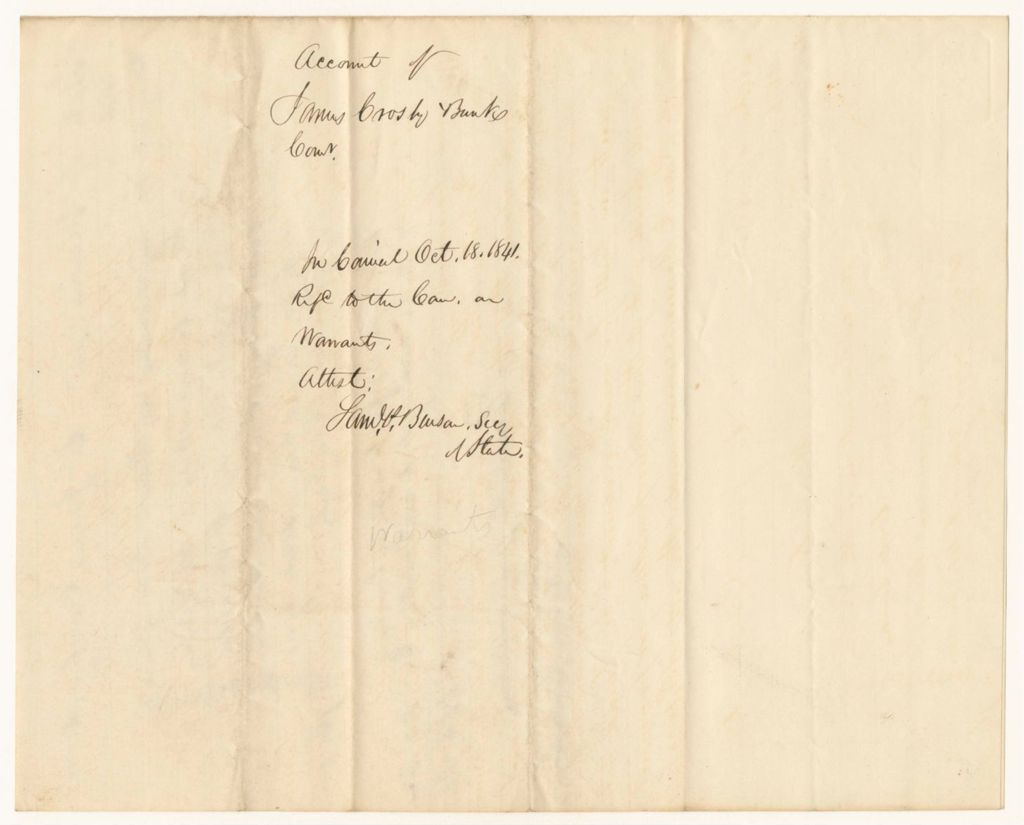 Account of
James Crosby Bank
Comr.
In Council Oct. 18. 1841.
Refd to the Com. on
Warrants.
Attest:
Saml. P. Benson. Secy
of State.
Warrants